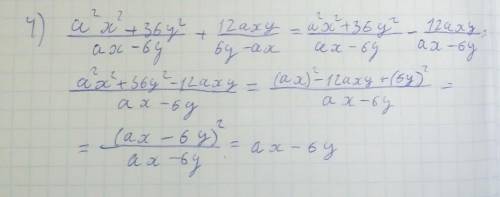 4) (a²x²+36y²)/(ax-6y) + 12axy/(6y-ax) = (a²x²+36y²)/(ax-6y) - 12axy/(ax-6y) =
(a²x²+36y²-12axy)/(ax-6y) = ((ax)²-12axy+(6y)²)/(ax-6y) =
= (ax-6y)²/(ax-6y) = ax-6y